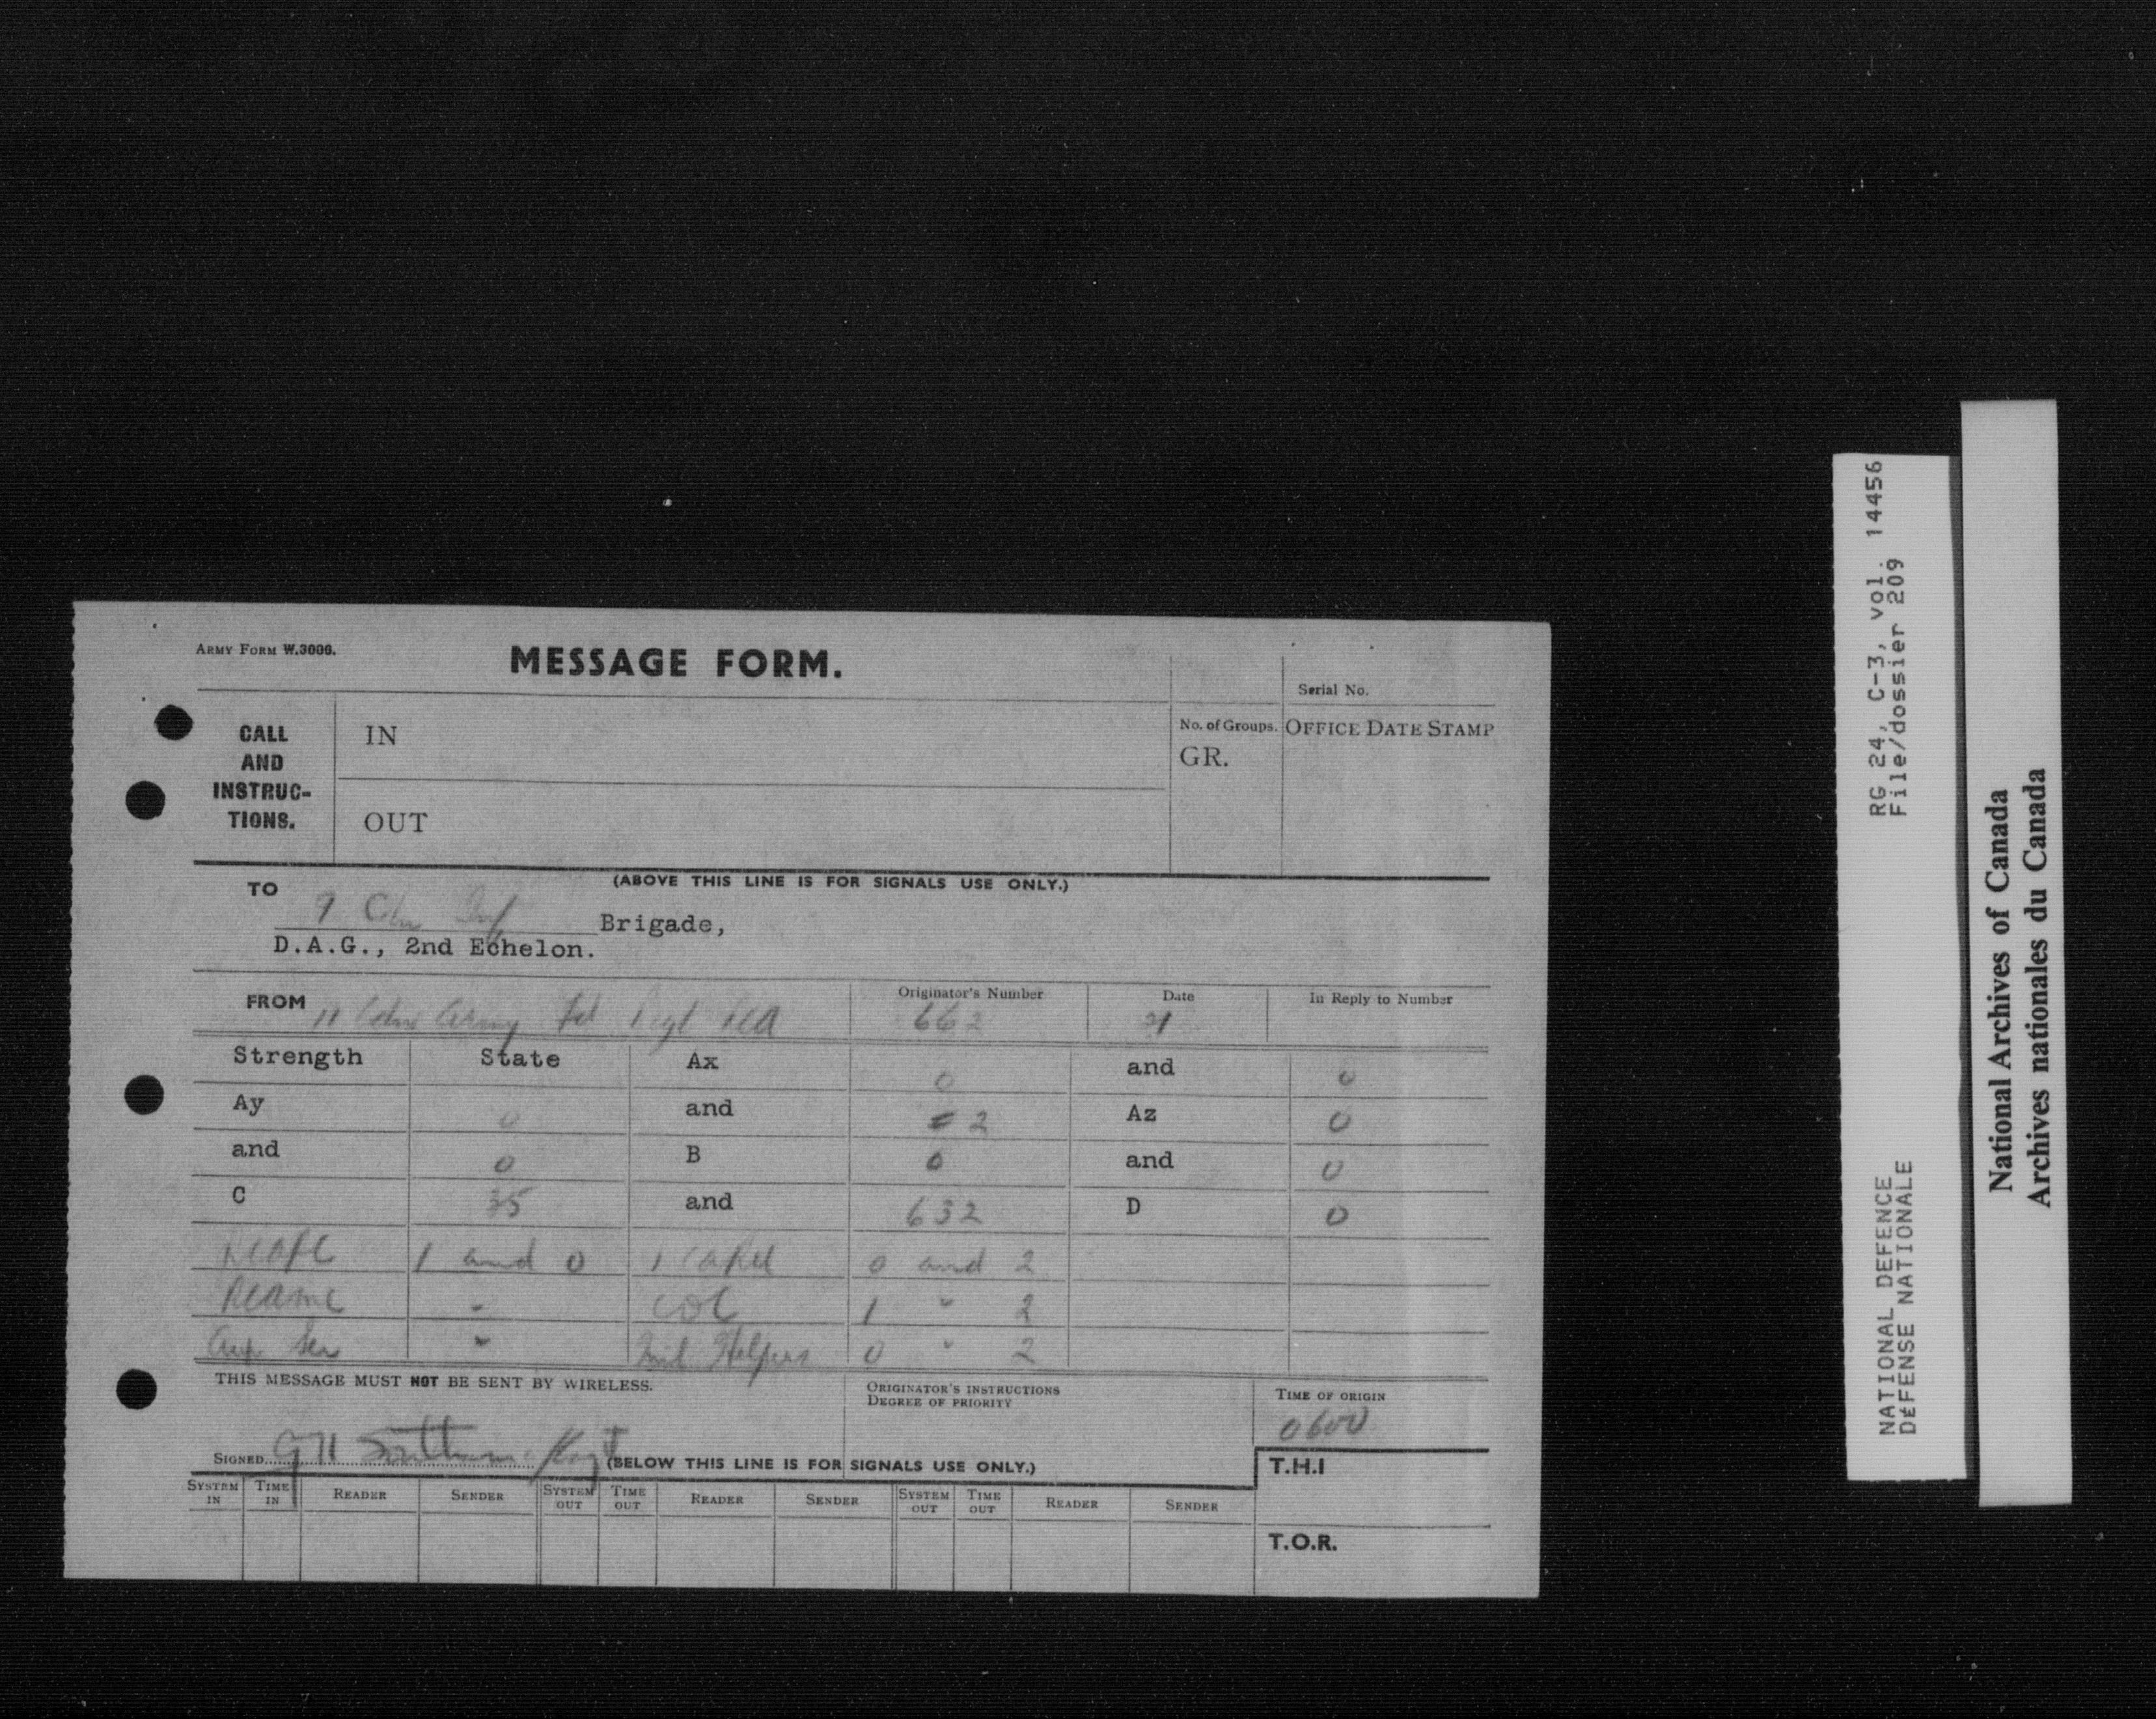 ARMY FORM W.3000.
MESSAGE FORM.
Serial No.
CALL AND INSTRUC-TIONS.
IN
OUT
No. of Groups.
GR.
OFFICE DATE STAMP
(ABOVE THIS LINE IS FOR SIGNALS USE ONLY.)
TO
9 Cdn Inf Brigade,
D.A.G., 2nd Echelon.
FROM 11 Cdn Army Fd Regt RCA
Originator's Number 662
Date 21
In Reply to Number
Strength State Ax 0 and 0
Ay 0 and 2 Az 0
and 0 B 0 and 0
C 35 and 632 D 0
RCAPC 1 and 0 0 and 2
RCAMC - CDC 1 " 2
Aux Ser - Helpers 0 " 2
THIS MESSAGE MUST NOT BE SENT BY WIRELESS.
ORIGINATOR'S INSTRUCTIONS
DEGREE OF PRIORITY
TIME OF ORIGIN
0600
SIGNED
(BELOW THIS LINE IS FOR SIGNALS USE ONLY.)
T.H.I
SYSTEM IN TIME IN READER SENDER SYSTEM OUT TIME OUT READER SENDER SYSTEM OUT TIME OUT READER SENDER
T.O.R.
RG 24, C-3, vol. 14456
File/dossier 209
NATIONAL DEFENCE
DÉFENSE NATIONALE
National Archives of Canada
Archives nationales du Canada